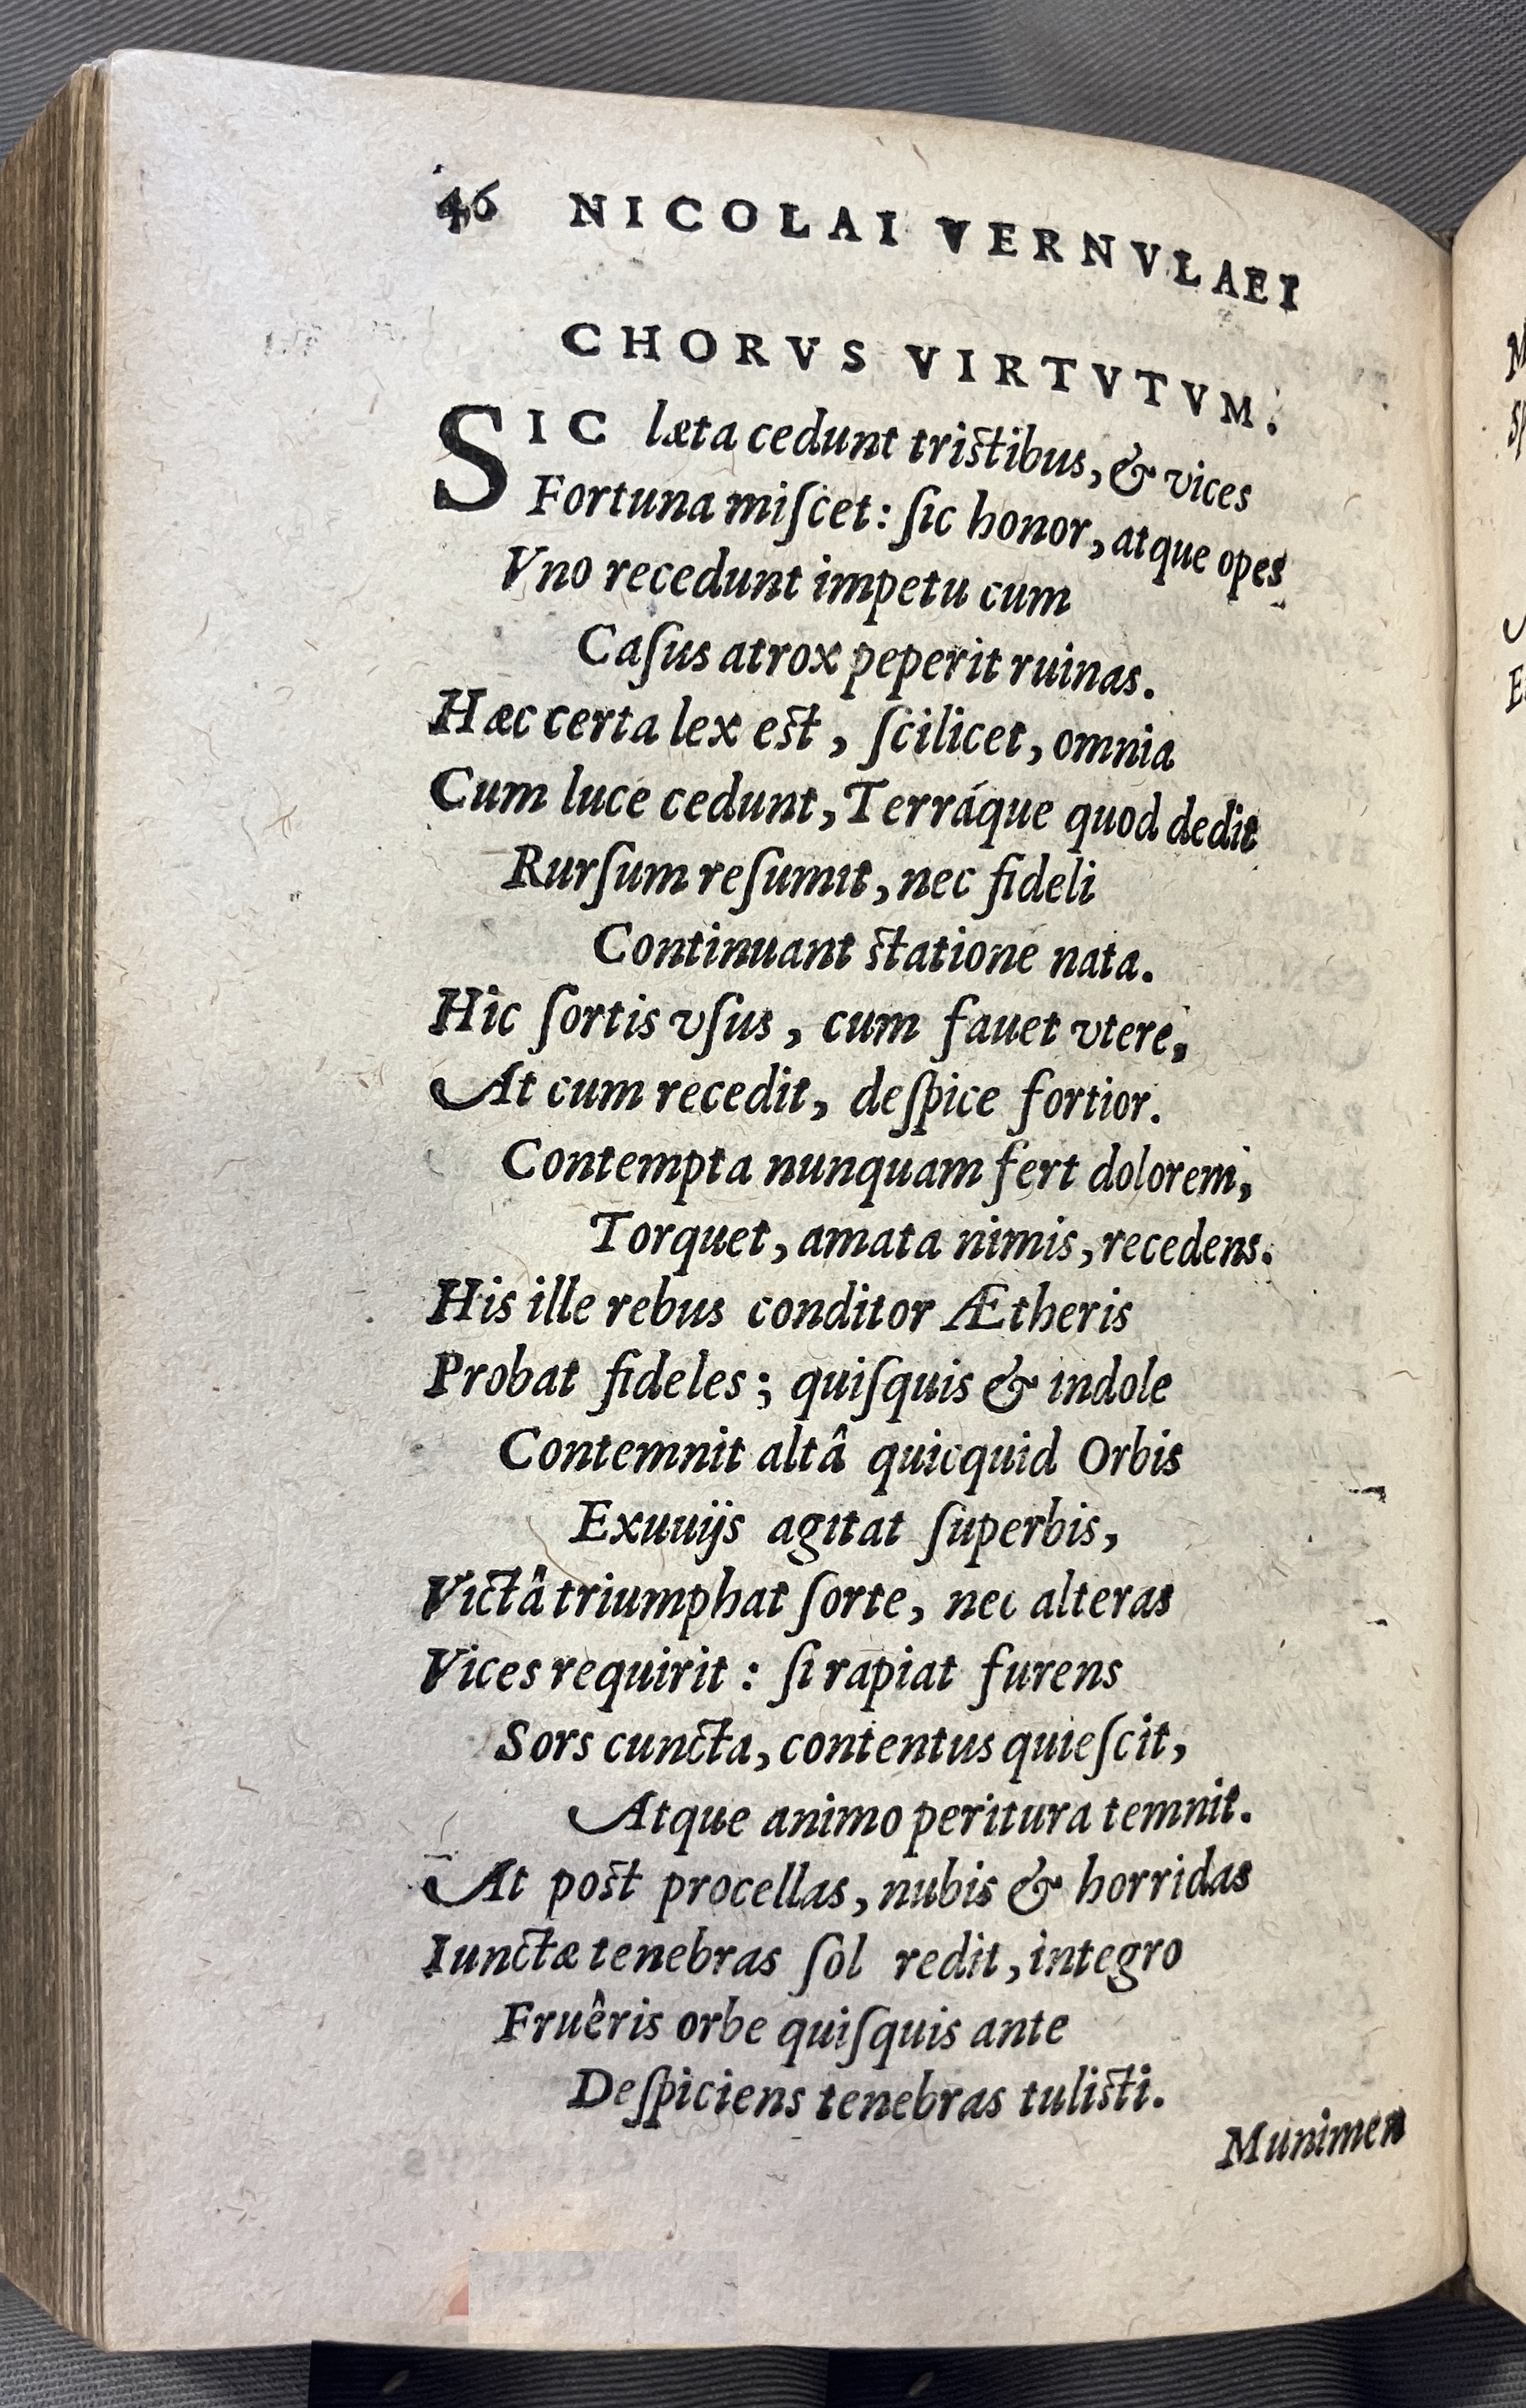 46 NICOLAI VERNVLAEI
CHORVS VIRTVTVM.
SIC læta cedunt tristibus, & vices
Fortuna miſcet: ſic honor, atque opes
Vno recedunt impetu cum
Caſus atrox peperit ruinas.
Hæc certa lex est, ſcilicet, omnia
Cum luce cedunt, Terráque quod dedit
Rurſum reſumit, nec fideli
Continuant statione nata.
Hic ſortis vſus, cum fauet vtere,
At cum recedit, deſpice fortior.
Contempta nunquam fert dolorem,
Torquet, amata nimis, recedens.
His ille rebus conditor Ætheris
Probat fideles; quiſquis & indole
Contemnit altâ quicquid Orbis
Exuuijs agitat ſuperbis,
Victâ triumphat ſorte, nec alteras
Vices requirit: ſi rapiat furens
Sors cuncta, contentus quieſcit,
Atque animo peritura temnit.
At post procellas, nubis & horridas
Iunctæ tenebras ſol redit, integro
Fruêris orbe quiſquis ante
Deſpiciens tenebras tulisti.
Munimen